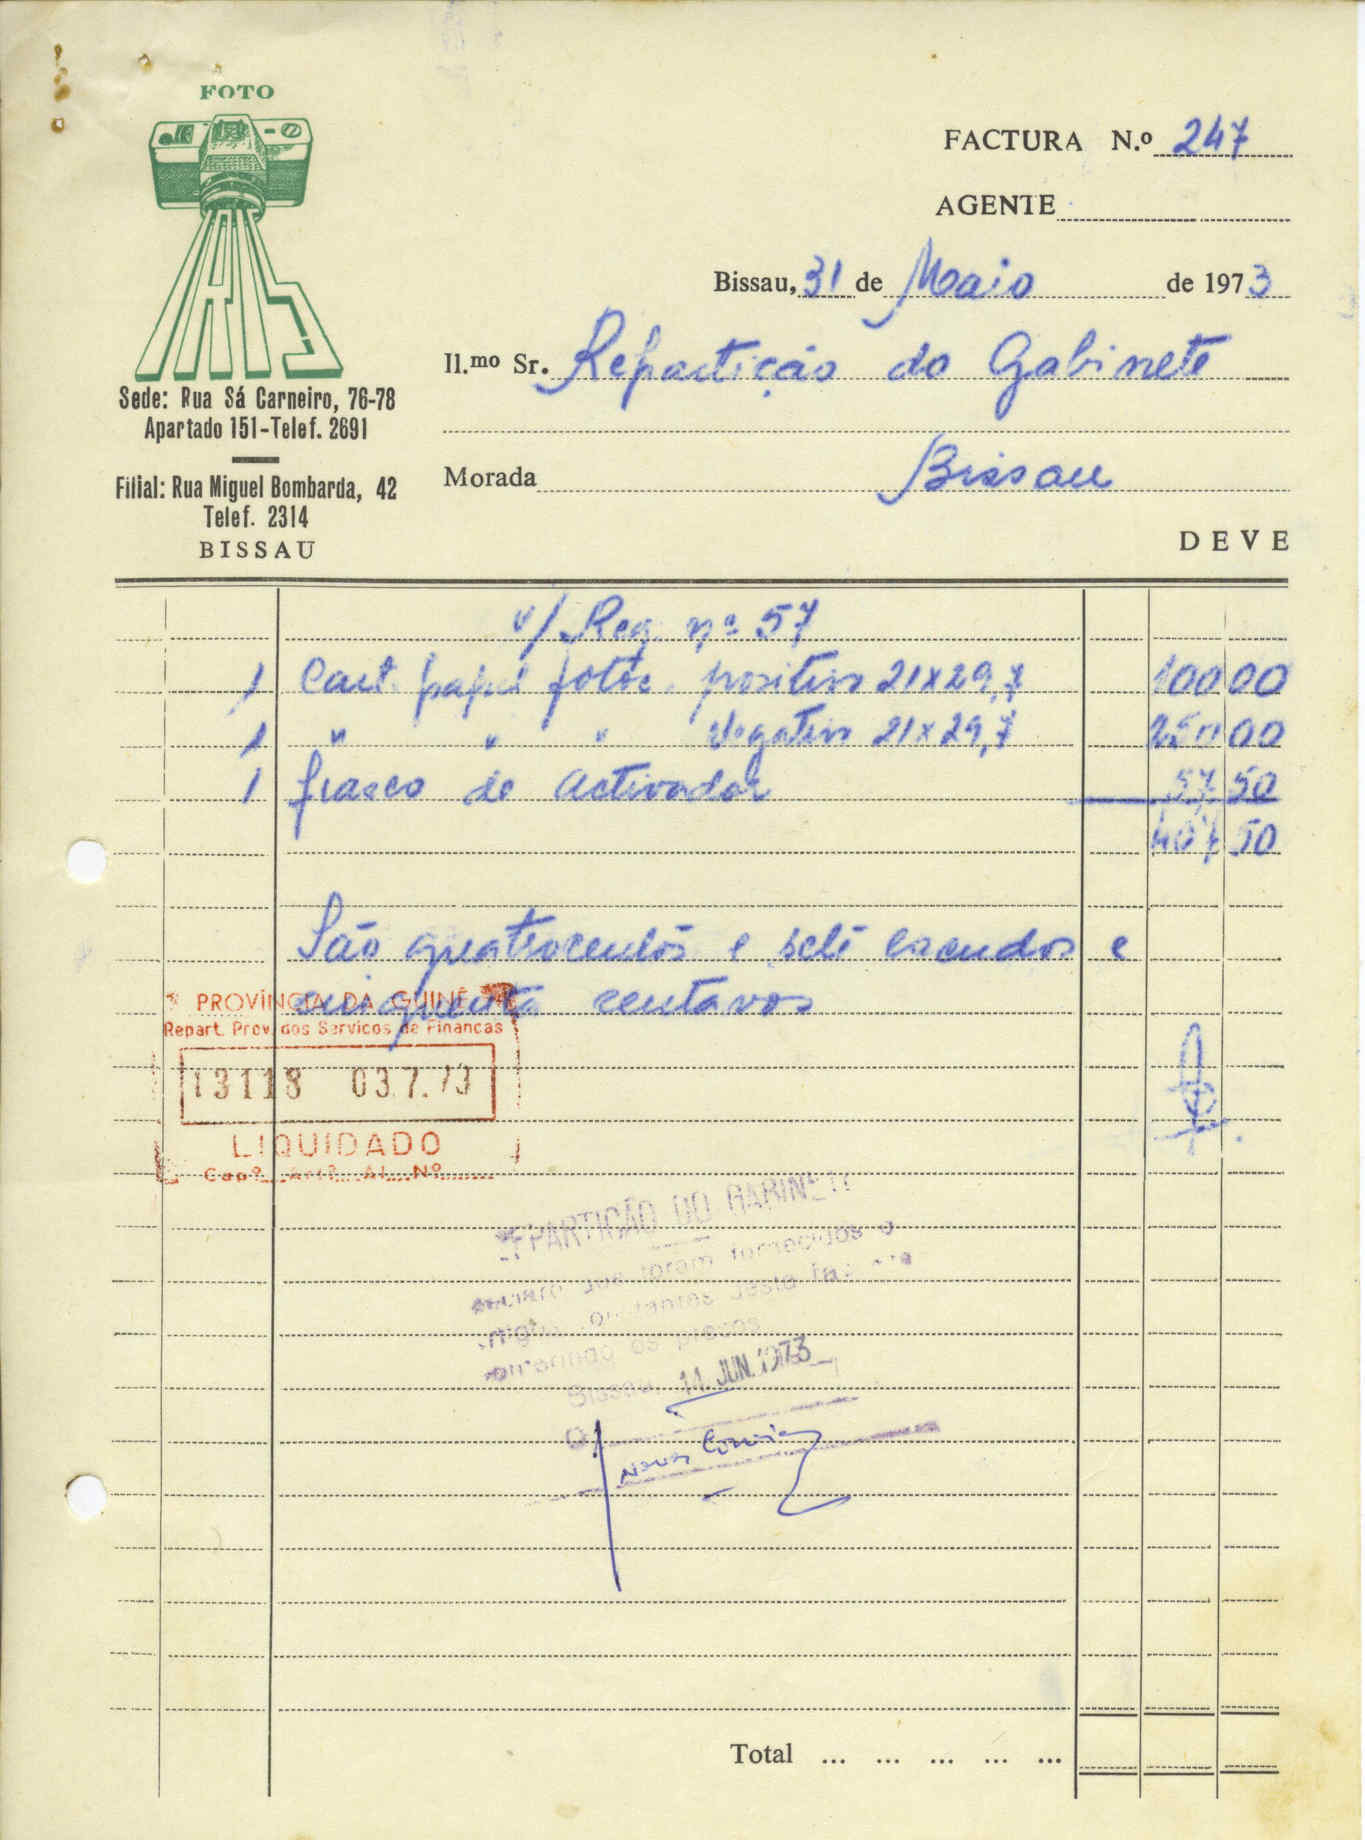 FOTO
IRIS
Sede: Rua Sá Carneiro, 76-78
Apartado 151-Telef. 2691
Filial: Rua Miguel Bombarda, 42
Telef. 2314
BISSAU
FACTURA N.º 247
AGENTE
Bissau, 31 de Maio de 1973
Il.mo Sr. Repartição do Gabinete
Morada Bissau
DEVE
v/ Req. nº 57
1 Cart. papel fotoc. positivo 21x29,7 100 00
1 " " " Negativo 21x29,7 250 00
1 frasco de activador 57 50
407 50
São quatrocentos e sete escudos e
cinquenta centavos
PROVÍNCIA DA GUINÉ
Repart. Prov. dos Serviços de Finanças
13118 03.7.73
LIQUIDADO
Capº Artº Al. Nº
REPARTIÇÃO DO GABINETE
que foram fornecidos o
constantes desta
os preços
Bissau, 14. JUN. 1973
O
Total ... ... ... ... ...